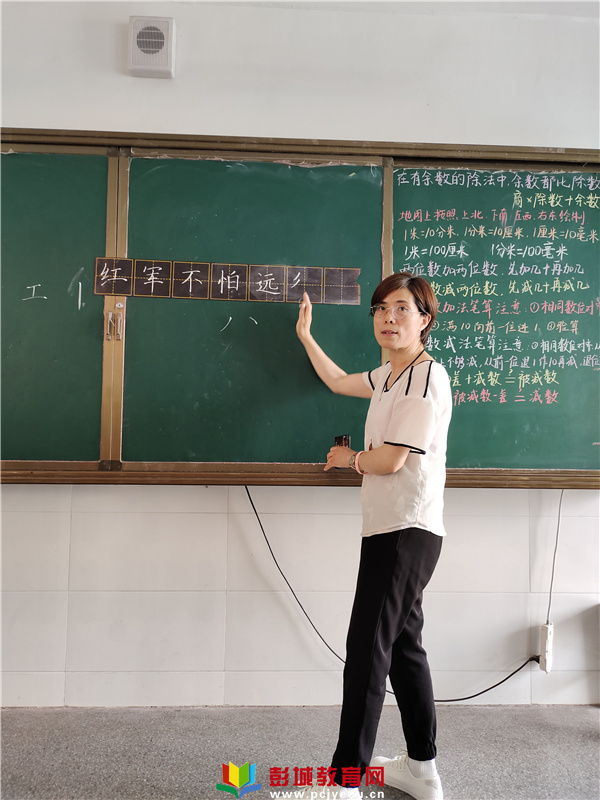 工 亻
红军不怕远彳
八
在有余数的除法中,余数都比除数
商×除数+余数
地图上按照上北、下南、左西、右东绘制
1米=10分米、1分米=10厘米、1厘米=10毫米
1米=100厘米 1分米=100毫米
两位数加两位数,先加几十再加几
数减两位数,先减几十再减几
加法笔算注意:①相同数位对
②满10向前一位进1 ③验算
数减法笔算注意:①相同数位对
不够减,从前一位退1作10再减
差+减数=被减数
被减数-差=减数
彭城教育网
www.pcjyw.cn